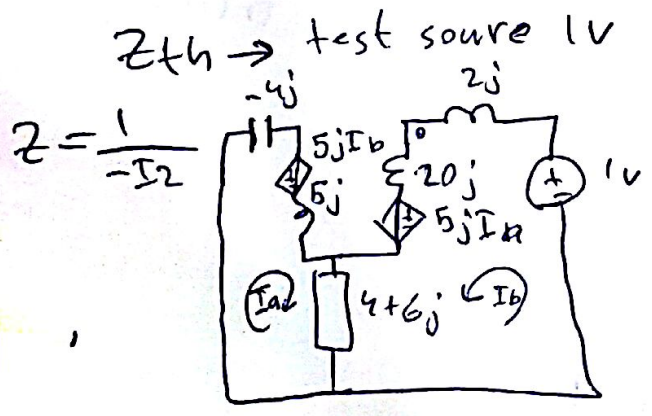 Zth → test soure 1v
Z = 1 / -I2
-4j
2j
5jIb
5j
20j
5jIa
1v
Ia
4+6j
Ib